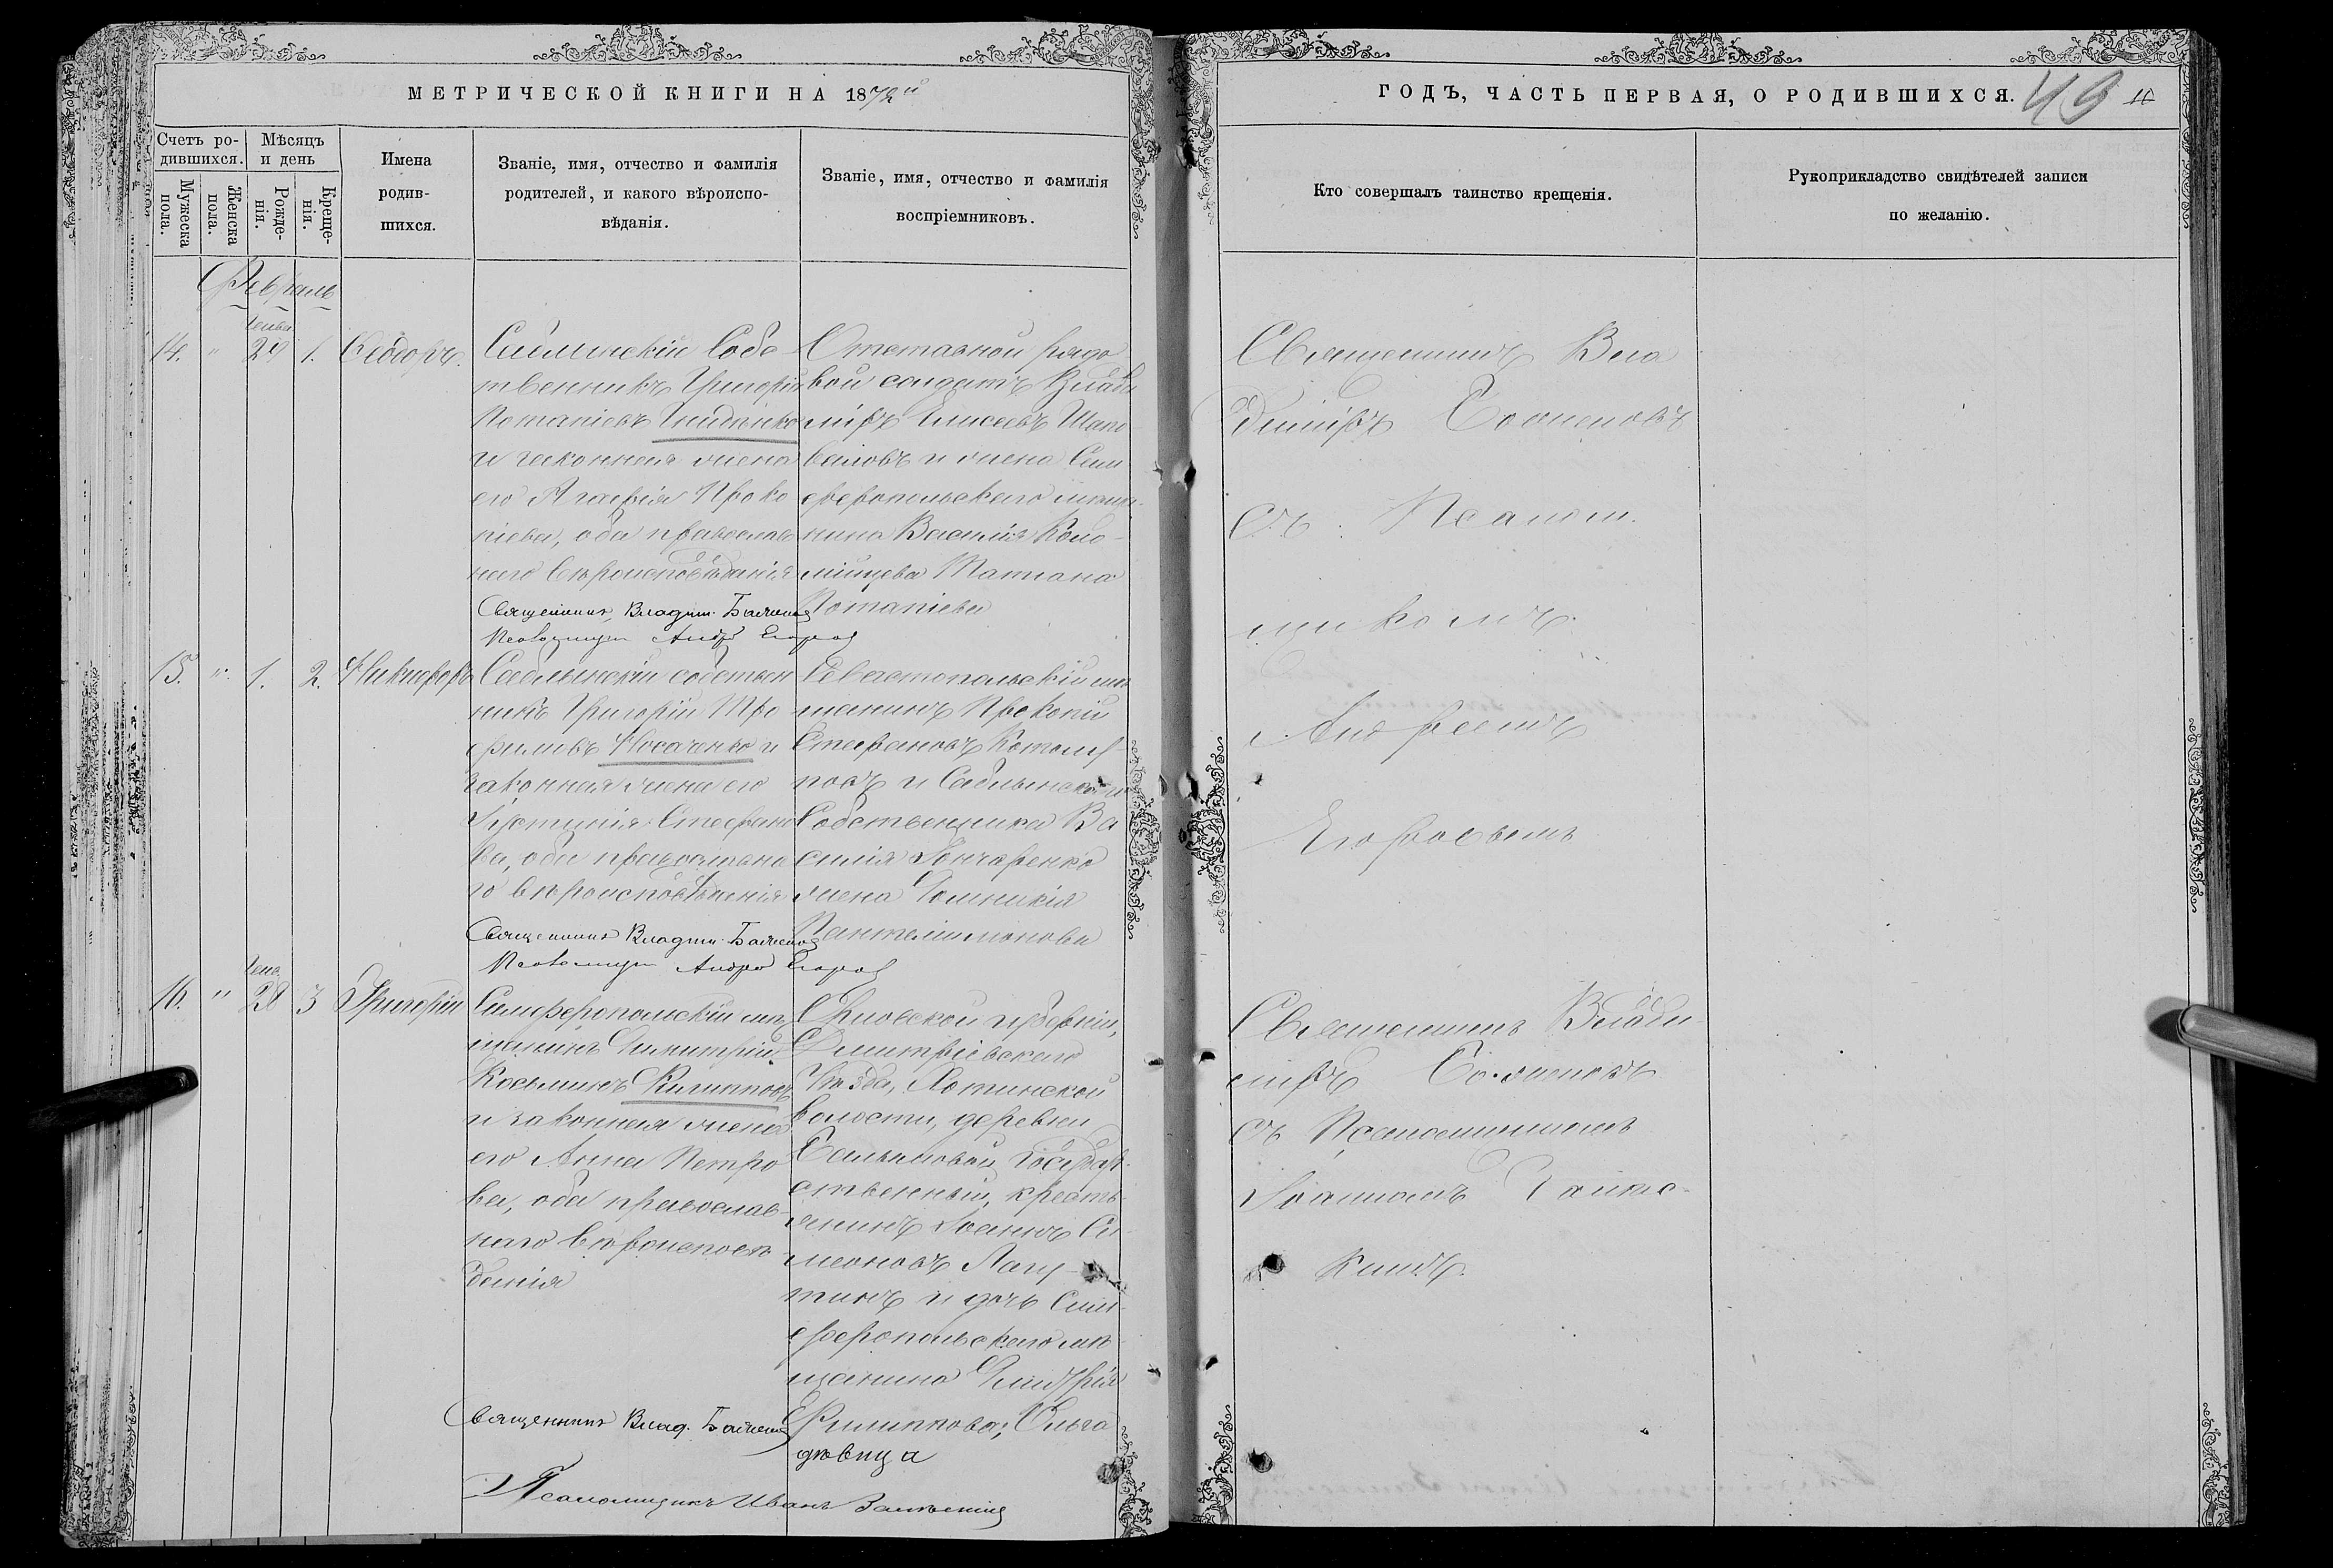 МЕТРИЧЕСКОЙ КНИГИ НА 1872й
ГОДЪ, ЧАСТЬ ПЕРВАЯ, О РОДИВШИХСЯ. 49
Счетъ ро-
дившихся.
Мужеска
пола.
Женска
пола.
Мѣсяцъ
и день
Рожде-
нія.
Креще-
нія.
Имена
родив-
шихся.
Званіе, имя, отчество и фамилія
родителей, и какого вѣроиспо-
вѣданія.
Званіе, имя, отчество и фамилія
воспріемниковъ.
Кто совершалъ таинство крещенія.
Рукоприкладство свидѣтелей записи
по желанію.
Февраль
14. " 29 1. Ѳеодоръ.
Саблынскій Собс
твенникъ Григорій
Потапіевъ
и законная жена
его Агафія Проко
піева, оба православ
наго вѣроисповѣданія
Священникъ Владим.
Андр
Отставной рядо
вой солдатъ Влади
міръ Елисеевъ Шапо
валовъ и жена Сим
феропольскаго мѣща-
нина Василія Коло-
мійцева Татіана
Потапіева
Священникъ Вла
диміръ
съ Псалом
щикомъ
Андреемъ
Егоровымъ
15. " 1. 2. Никифоръ
Саблынскій собствен
никъ Григорій Тро
фимовъ Носаченко и
законная жена его
Іустинія Стефано
ва, оба православна
го вѣроисповѣданія
Священникъ Владим.
Андр
Севастопольскій мѣ
щанинъ Прокопій
Стефановъ
и Саблынскаго
Собственника Ва
силія Гончаренко
жена
Пантелиимонова
16. " 28 3 Григорій
Симферопольскій мѣ
щанинъ Димитрій
Косьминъ Филипповъ
и законная жена
его Анна Петро
ва, оба православ-
наго вѣроисповѣ
данія
Священникъ Влад.
Псаломщикъ Иванъ
губерніи,
Дмитріевскаго
Уѣзда, Хотинской
волости, деревни
Государ-
ственный кресть-
янинъ Іоаннъ Си
меоновъ Лагу-
тинъ и дочь Сим-
феропольскаго мѣ
щанина Димитрія
Филиппова; Ольга
дѣвица
Священникъ Влади
міръ
съ Псаломщикомъ
Іоанномъ